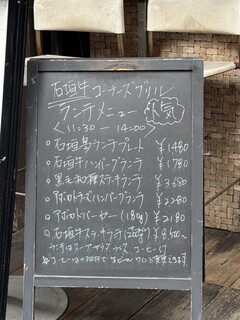 石垣牛コーナーズグリル
ランチメニュー 人気
〈11:30 ー 14:00〉
石垣島ランチプレート ¥1480
石垣牛ハンバーグランチ ¥1780
黒毛和種ステーキランチ ¥3,680
アボカドチーズハンバーグランチ ¥2280
アボカドバーガー(180g) ¥2180
石垣牛ステーキランチ ¥8,500〜
ランチはスープ サラダ ライス コーヒー付